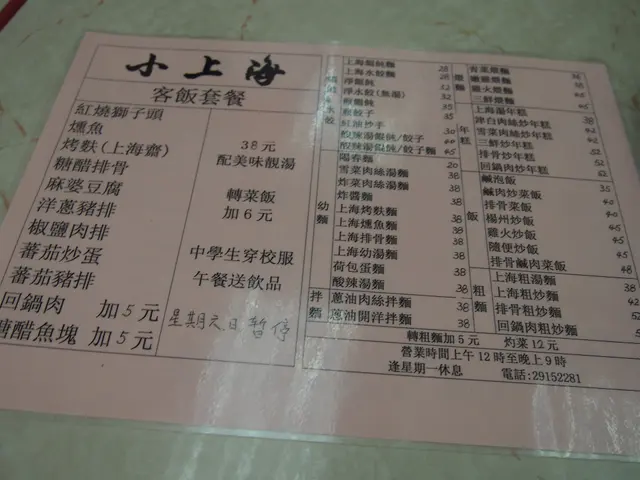 小上海
客飯套餐
紅燒獅子頭
燻魚
烤麩(上海齋)
糖醋排骨
麻婆豆腐
洋蔥豬排
椒鹽肉排
蕃茄炒蛋
蕃茄豬排
回鍋肉 加5元
糖醋魚塊 加5元
38元
配美味靚湯
轉菜飯
加6元
中學生穿校服
午餐送飲品
星期六.日暫停
上海餛飩麵 28
上海水餃麵 28
淨餛飩 32
淨水餃(無湯) 32
35
紅油抄手 35
酸辣湯餛飩/餃子 30
酸辣湯餛飩/餃子麵 45
幼麵
陽春麵 20
雪菜肉絲湯麵 38
炸菜肉絲湯麵 38
炸醬麵 38
上海烤麩麵 38
上海燻魚麵 38
上海排骨麵 38
上海幼湯麵 38
荷包蛋麵 38
酸辣湯麵 38
拌麵
蔥油肉絲拌麵 38
蔥油開洋拌麵 38
煨麵
青菜煨麵 38
嫩雞煨麵
雞火煨麵 45
三鮮煨麵 45
年糕
上海湯年糕 38
津白肉絲炒年糕 42
雪菜肉絲炒年糕 42
三鮮炒年糕 52
排骨炒年糕 52
回鍋肉炒年糕 52
飯
鹹泡飯 35
鹹肉炒菜飯 40
排骨菜飯 40
楊州炒飯 45
雞火炒飯 45
隨便炒飯 45
排骨鹹肉菜飯 48
粗麵
上海粗湯麵 38
上海粗炒麵 42
排骨粗炒麵
回鍋肉粗炒麵
轉粗麵加5元 灼菜12元
營業時間上午12時至晚上9時
逢星期一休息 電話:29152281